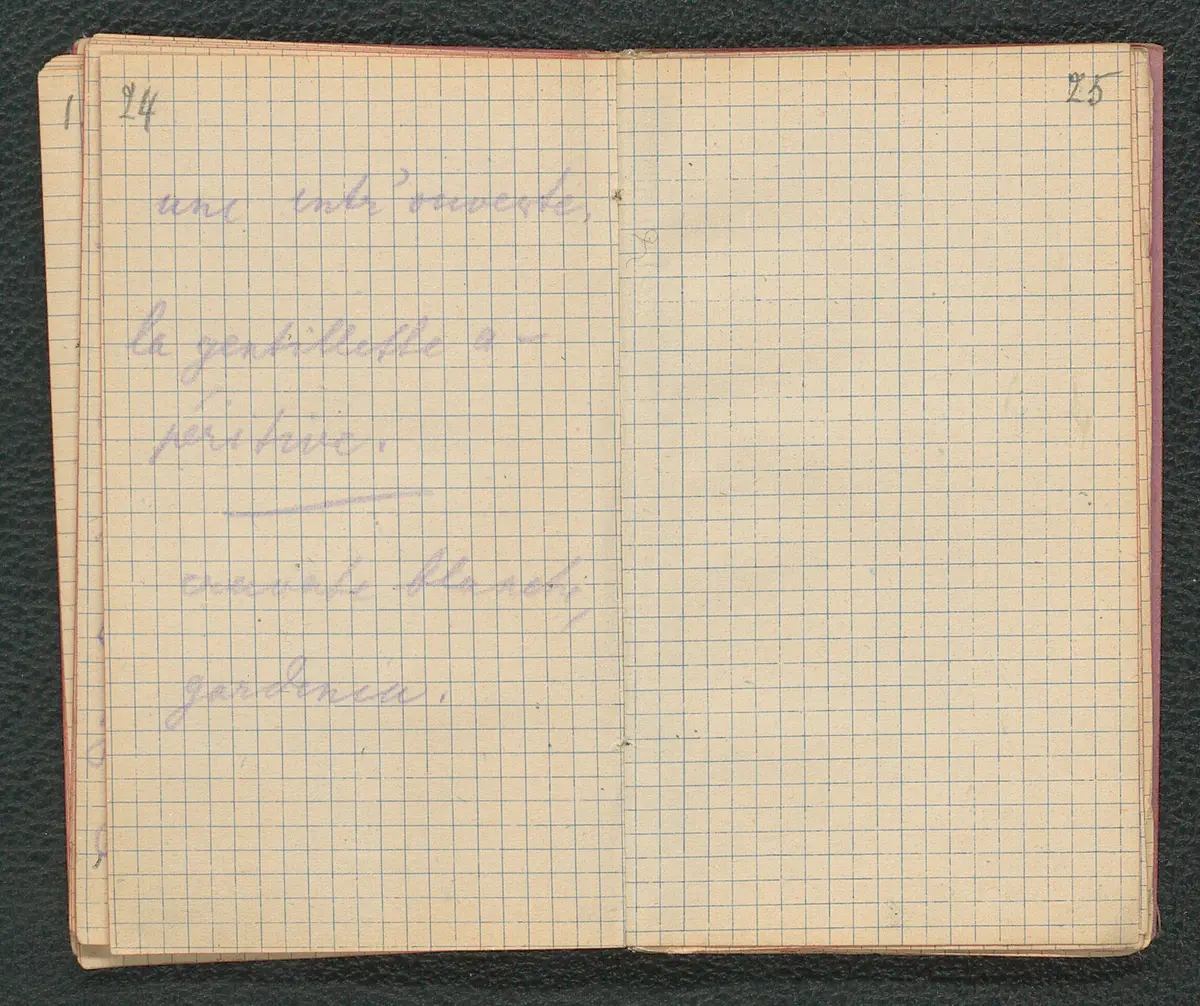 24
une entr'ouverte,
la gentillette a-
péritive.
cravate blanche,
gardenia.
25